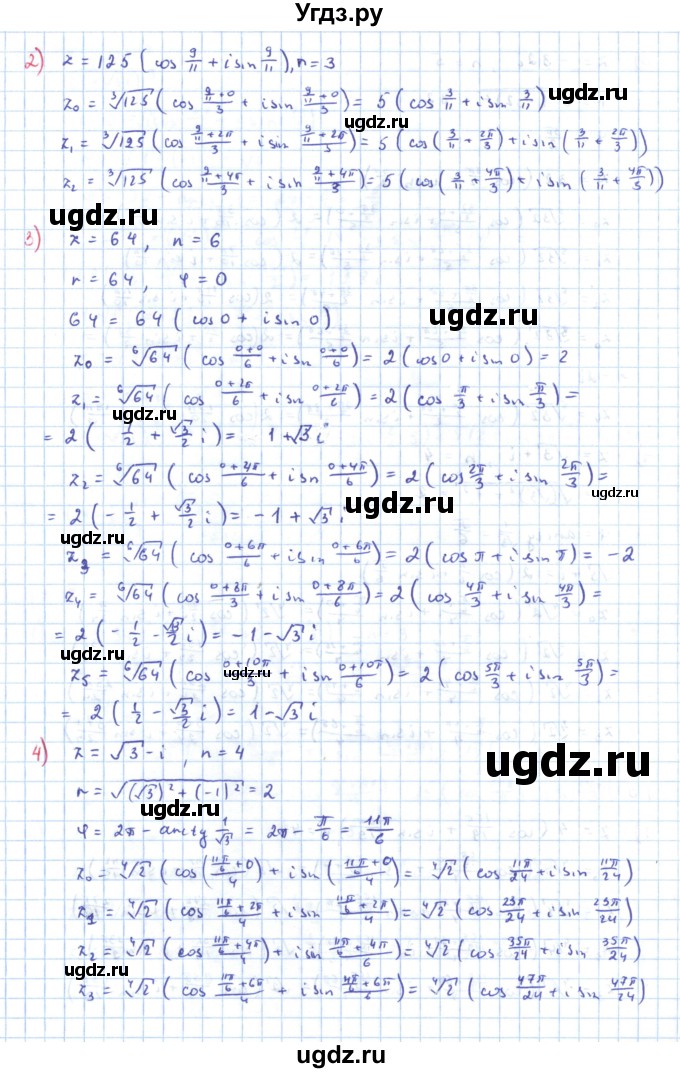 Угдз.ру
2) z = 125 (cos 9/11 + i sin 9/11), n = 3
z₀ = ∛125 (cos (9/11 + 0)/3 + i sin (9/11 + 0)/3) = 5 (cos 3/11 + i sin 3/11)
z₁ = ∛125 (cos (9/11 + 2π)/3 + i sin (9/11 + 2π)/3) = 5 (cos (3/11 + 2π/3) + i sin (3/11 + 2π/3))
z₂ = ∛125 (cos (9/11 + 4π)/3 + i sin (9/11 + 4π)/3) = 5 (cos (3/11 + 4π/3) + i sin (3/11 + 4π/3))
3) z = 64, n = 6
r = 64, φ = 0
64 = 64 (cos 0 + i sin 0)
z₀ = ⁶√64 (cos (0+0)/6 + i sin (0+0)/6) = 2 (cos 0 + i sin 0) = 2
z₁ = ⁶√64 (cos (0+2π)/6 + i sin (0+2π)/6) = 2 (cos π/3 + i sin π/3) =
= 2 (1/2 + √3/2 i) = 1 + √3 i
z₂ = ⁶√64 (cos (0+4π)/6 + i sin (0+4π)/6) = 2 (cos 2π/3 + i sin 2π/3) =
= 2 (-1/2 + √3/2 i) = -1 + √3 i
z₃ = ⁶√64 (cos (0+6π)/6 + i sin (0+6π)/6) = 2 (cos π + i sin π) = -2
z₄ = ⁶√64 (cos (0+8π)/3 + i sin (0+8π)/6) = 2 (cos 4π/3 + i sin 4π/3) =
= 2 (-1/2 - √3/2 i) = -1 - √3 i
z₅ = ⁶√64 (cos (0+10π)/3 + i sin (0+10π)/6) = 2 (cos 5π/3 + i sin 5π/3) =
= 2 (1/2 - √3/2 i) = 1 - √3 i
4) z = √3 - i, n = 4
r = √((√3)² + (-1)²) = 2
φ = 2π - arctg 1/√3 = 2π - π/6 = 11π/6
z₀ = ⁴√2 (cos (11π/6 + 0)/4 + i sin (11π/6 + 0)/4) = ⁴√2 (cos 11π/24 + i sin 11π/24)
z₁ = ⁴√2 (cos (11π/6 + 2π)/4 + i sin (11π/6 + 2π)/4) = ⁴√2 (cos 23π/24 + i sin 23π/24)
z₂ = ⁴√2 (cos (11π/6 + 4π)/4 + i sin (11π/6 + 4π)/6) = ⁴√2 (cos 35π/24 + i sin 35π/24)
z₃ = ⁴√2 (cos (11π/6 + 6π)/4 + i sin (11π/6 + 6π)/6) = ⁴√2 (cos 47π/24 + i sin 47π/24)
ugdz.ru